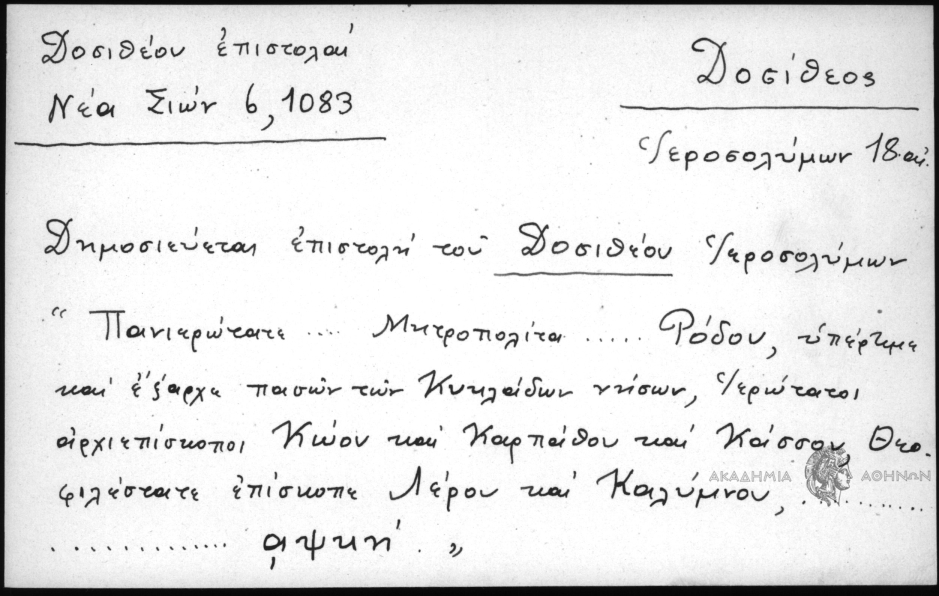 Δοσιθέου ἐπιστολαί
Νέα Σιών 6, 1083
Δοσίθεος
Ἱεροσολύμων 18 αἰ.
Δημοσιεύεται ἐπιστολή τοῦ Δοσιθέου Ἱεροσολύμων
“ Πανιερώτατε .... Μητροπολίτα ..... Ρόδου, ὑπέρτιμε
καί ἔξαρχε πασῶν τῶν Κυκλάδων νήσων, Ἱερώτατοι
ἀρχιεπίσκοποι Κώου καί Καρπάθου καί Κάσσου, Θεο-
φιλέστατε ἐπίσκοπε Λέρου καί Καλύμνου, ...........
............. ͵αψκη΄. „
ΑΚΑΔΗΜΙΑ ΑΘΗΝΩΝ